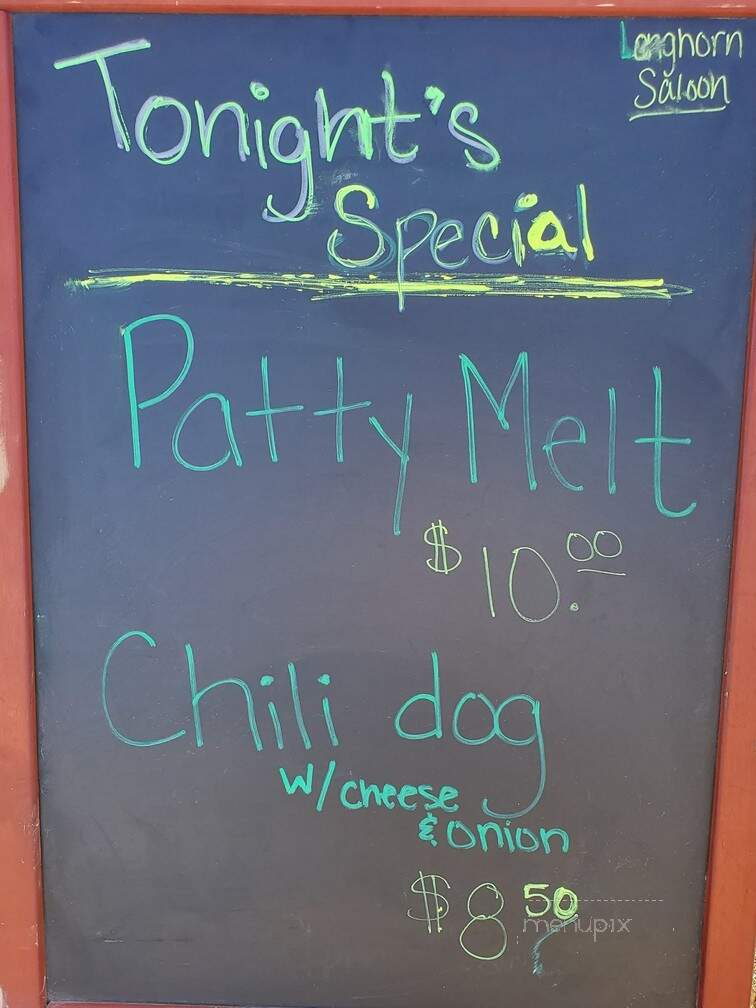 Longhorn
Saloon
Tonight's
Special
Patty Melt
$10.00
Chili dog
w/cheese
& onion
$8 50
menupix